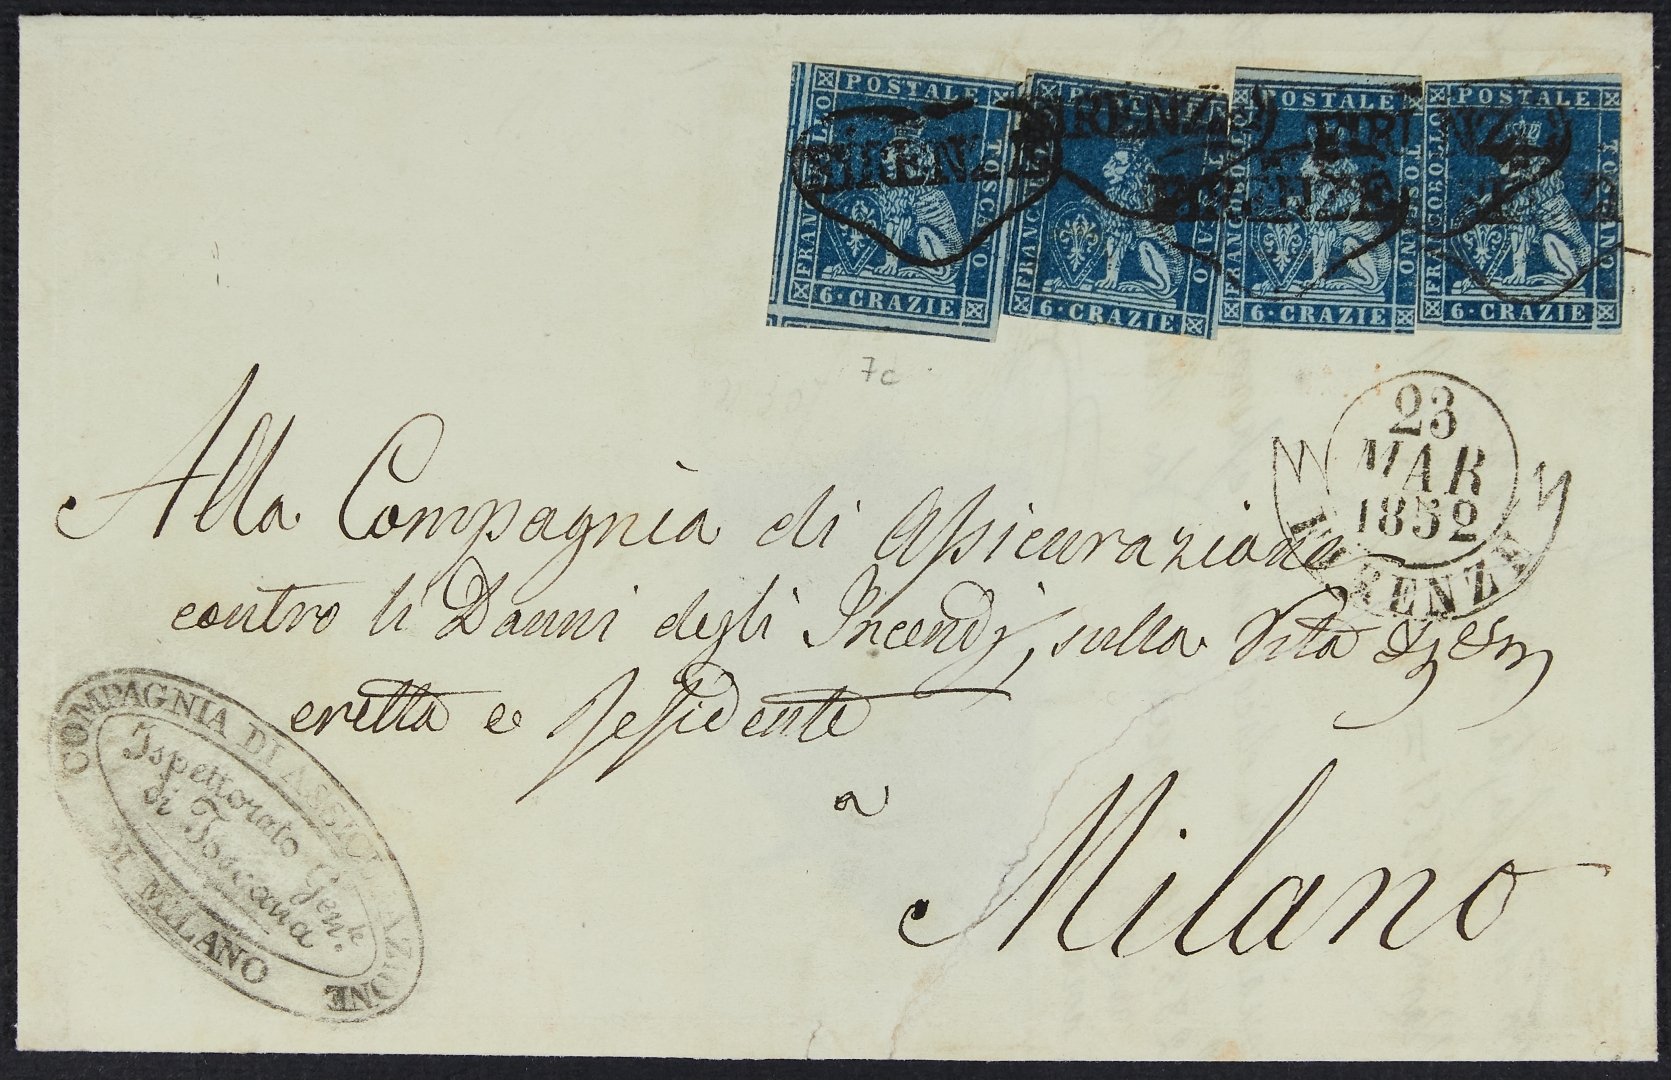 FRANCOBOLLO POSTALE TOSCANO
6·CRAZIE
FRANCOBOLLO POSTALE TOSCANO
6·CRAZIE
FRANCOBOLLO POSTALE TOSCANO
6·CRAZIE
FRANCOBOLLO POSTALE TOSCANO
6·CRAZIE
FIRENZE
FIRENZE
FIRENZE
FIRENZE
7c
23
MAR
1852
FIRENZE
Alla Compagnia di Assicurazione
contro li Danni degli Incendj, sulla Vita
eretta e residente
a
Milano
COMPAGNIA DI ASSICURAZIONE
DI MILANO
Ispettorato Genle.
di Toscana